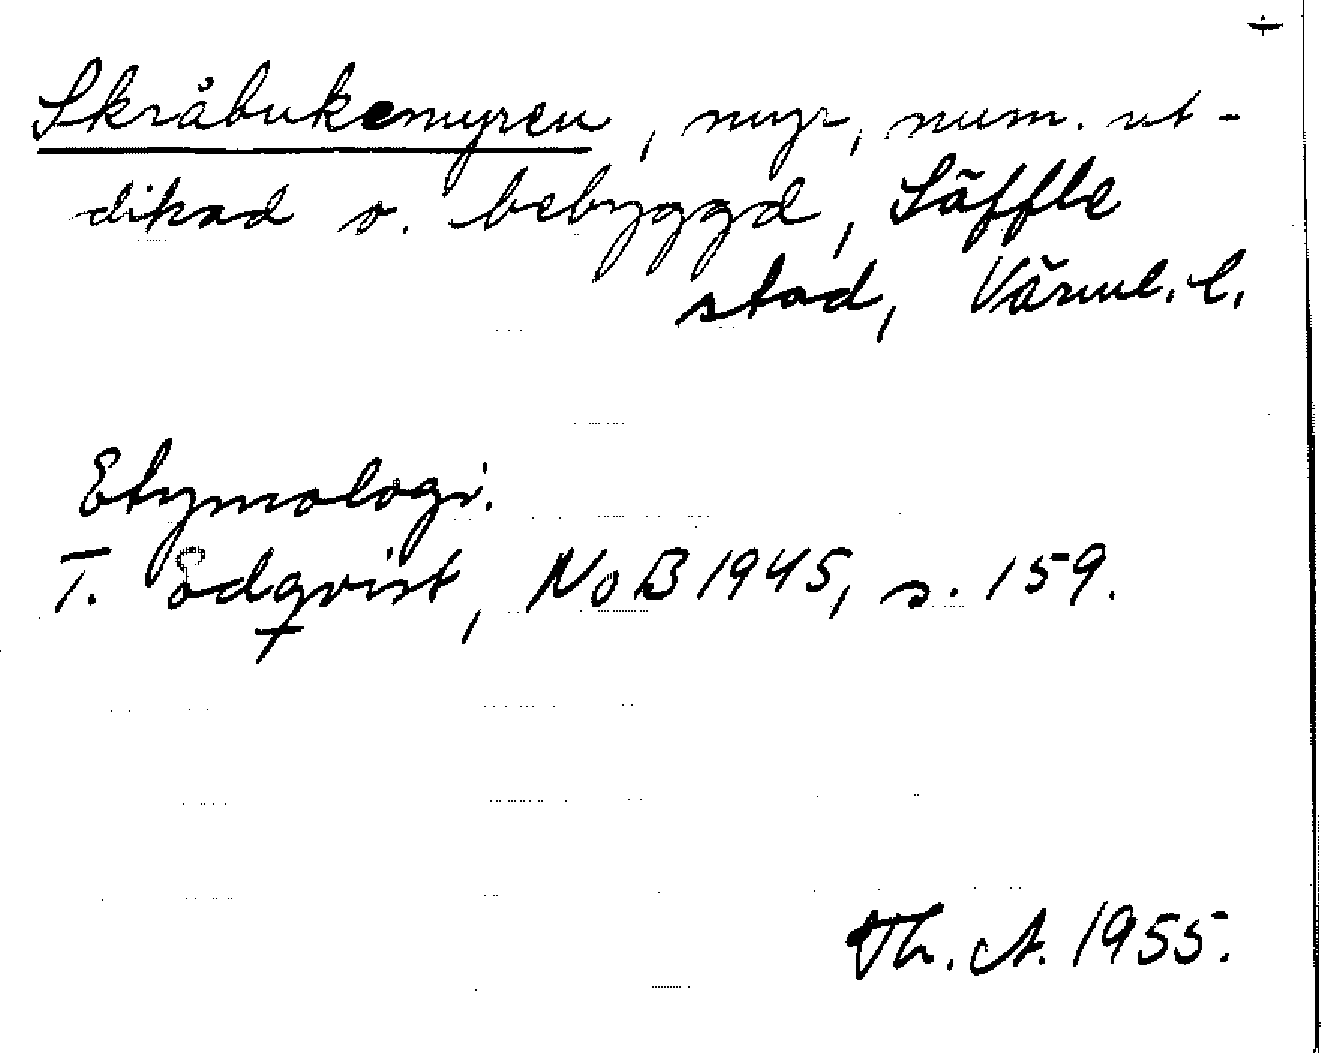 Skråbukemyren, myr, num. ut-
dikad o. bebyggd, Säffle
stad, Värml. l.
Etymologi.
T. Ödqvist, NoB 1945, s. 159.
Th. A. 1955.